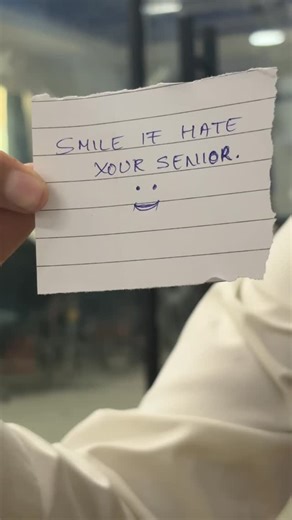 SMILE IF HATE
YOUR SENIOR.